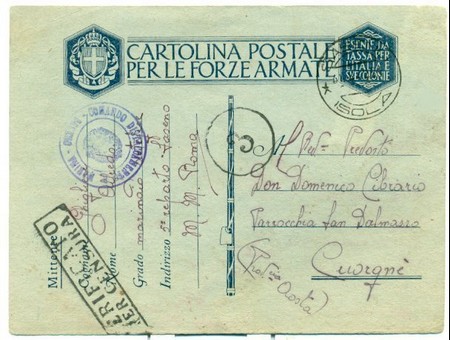 CARTOLINA POSTALE
PER LE FORZE ARMATE
ESENTE DA
TASSA PER
L'ITALIA E
SUE COLONIE
ISOLA
COMANDO DISTACCAMENTO
VERIFICATO
PER CENSURA
Mittente
Nome Alfredo
Grado marinaio
Indirizzo 5º reparto
M. M. Roma
Al Rev. Prevosto
Don Domenico Cibrario
Parrocchia San Dalmazzo
Cuorgnè
Aosta)